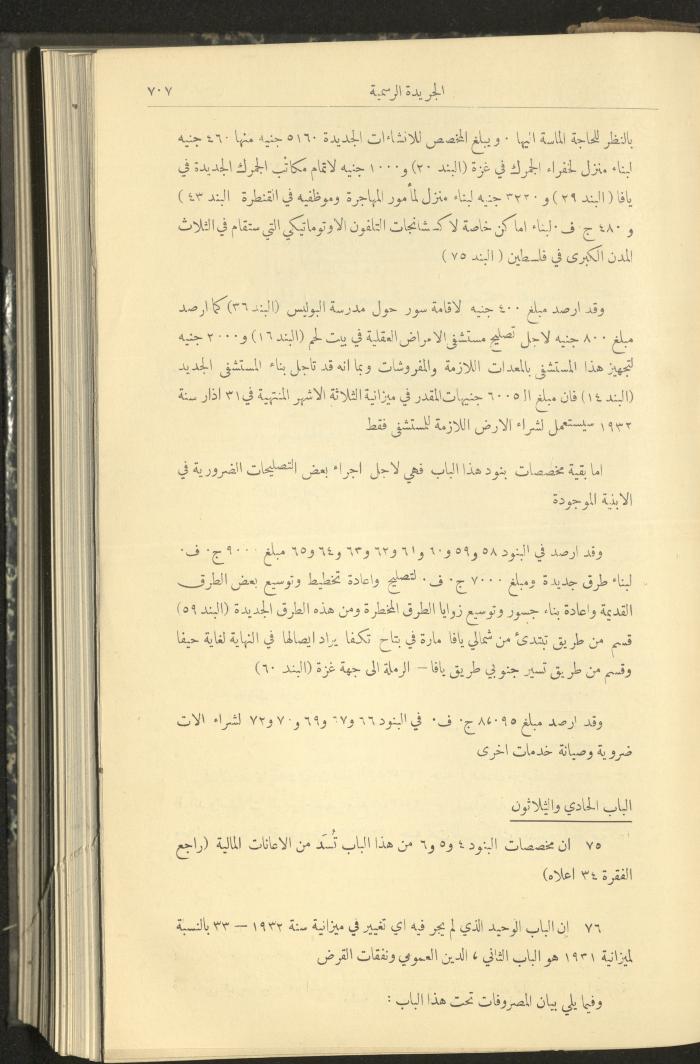 الجريدة الرسمية
٧٠٧
بالنظر للحاجة الماسة اليها ٠ ويبلغ المخصص للانشاءات الجديدة ٥١٦٠ جنيه منها ٤٦٠ جنيه
لبناء منزل لخفراء الجمرك في غزة (البند ٢٠) و١٠٠٠ جنيه لاتمام مكاتب الجمرك الجديدة في
يافا ( البند ٢٩ ) و ٣٢٢٠ جنيه لبناء منزل لمأمور المهاجرة وموظفيه في القنطرة البند ٤٣ )
و ٤٨٠ ج ٠ ف ٠ لبناء اماكن خاصة لاكسشانجات التلفون الاوتوماتيكي التي ستقام في الثلاث
المدن الكبرى في فلسطين ( البند ٧٥ )
وقد ارصد مبلغ ٤٠٠ جنيه لاقامة سور حول مدرسة البوليس (البند ٣٦) كما ارصد
مبلغ ٨٠٠ جنيه لاجل تصليح مستشفى الامراض العقلية في بيت لحم (البند ١٦) و٢٠٠٠ جنيه
لتجهيز هذا المستشفى بالمعدات اللازمة والمفروشات وبما انه قد تاجل بناء المستشفى الجديد
(البند ١٤) فان مبلغ ال ٦٠٠٥ جنيهات المقدر في ميزانية الثلاثة الاشهر المنتهية في ٣١ اذار سنة
١٩٣٢ سيستعمل لشراء الارض اللازمة للمستشفى فقط
اما بقية مخصصات بنود هذا الباب فهي لاجل اجراء بعض التصليحات الضرورية في
الابنية الموجودة
وقد ارصد في البنود ٥٨ و٥٩ و٦٠ و٦١ و٦٢ و٦٣ و٦٤ و٦٥ مبلغ ٩٠٠٠ ج٠ ف٠
لبناء طرق جديدة ومبلغ ٧٠٠٠ ج٠ ف٠ لتصليح واعادة تخطيط وتوسيع بعض الطرق
القديمة واعادة بناء جسور وتوسيع زوايا الطرق الخطرة ومن هذه الطرق الجديدة (البند ٥٩)
قسم من طريق تبتدئ من شمالي يافا مارة في بتاح تكفا يراد ايصالها في النهاية لغاية حيفا
وقسم من طريق تسير جنوبي طريق يافا – الرملة الى جهة غزة (البند ٦٠)
وقد ارصد مبلغ ٨٧٠٩٥ ج٠ ف٠ في البنود ٦٦ و٦٧ و٦٩ و٧٠ و٧٢ لشراء الات
ضروية وصيانة خدمات اخرى
الباب الحادي والثلاثون
٧٥ ان مخصصات البنود ٤ و٥ و٦ من هذا الباب تُسَد من الاعانات المالية (راجع
الفقرة ٣٤ اعلاه)
٧٦ ان الباب الوحيد الذي لم يجر فيه اي تغيير في ميزانية سنة ١٩٣٢ – ٣٣ بالنسبة
لميزانية ١٩٣١ هو الباب الثاني ، الدين العمومي ونفقات القرض
وفيما يلي بيان المصروفات تحت هذا الباب :